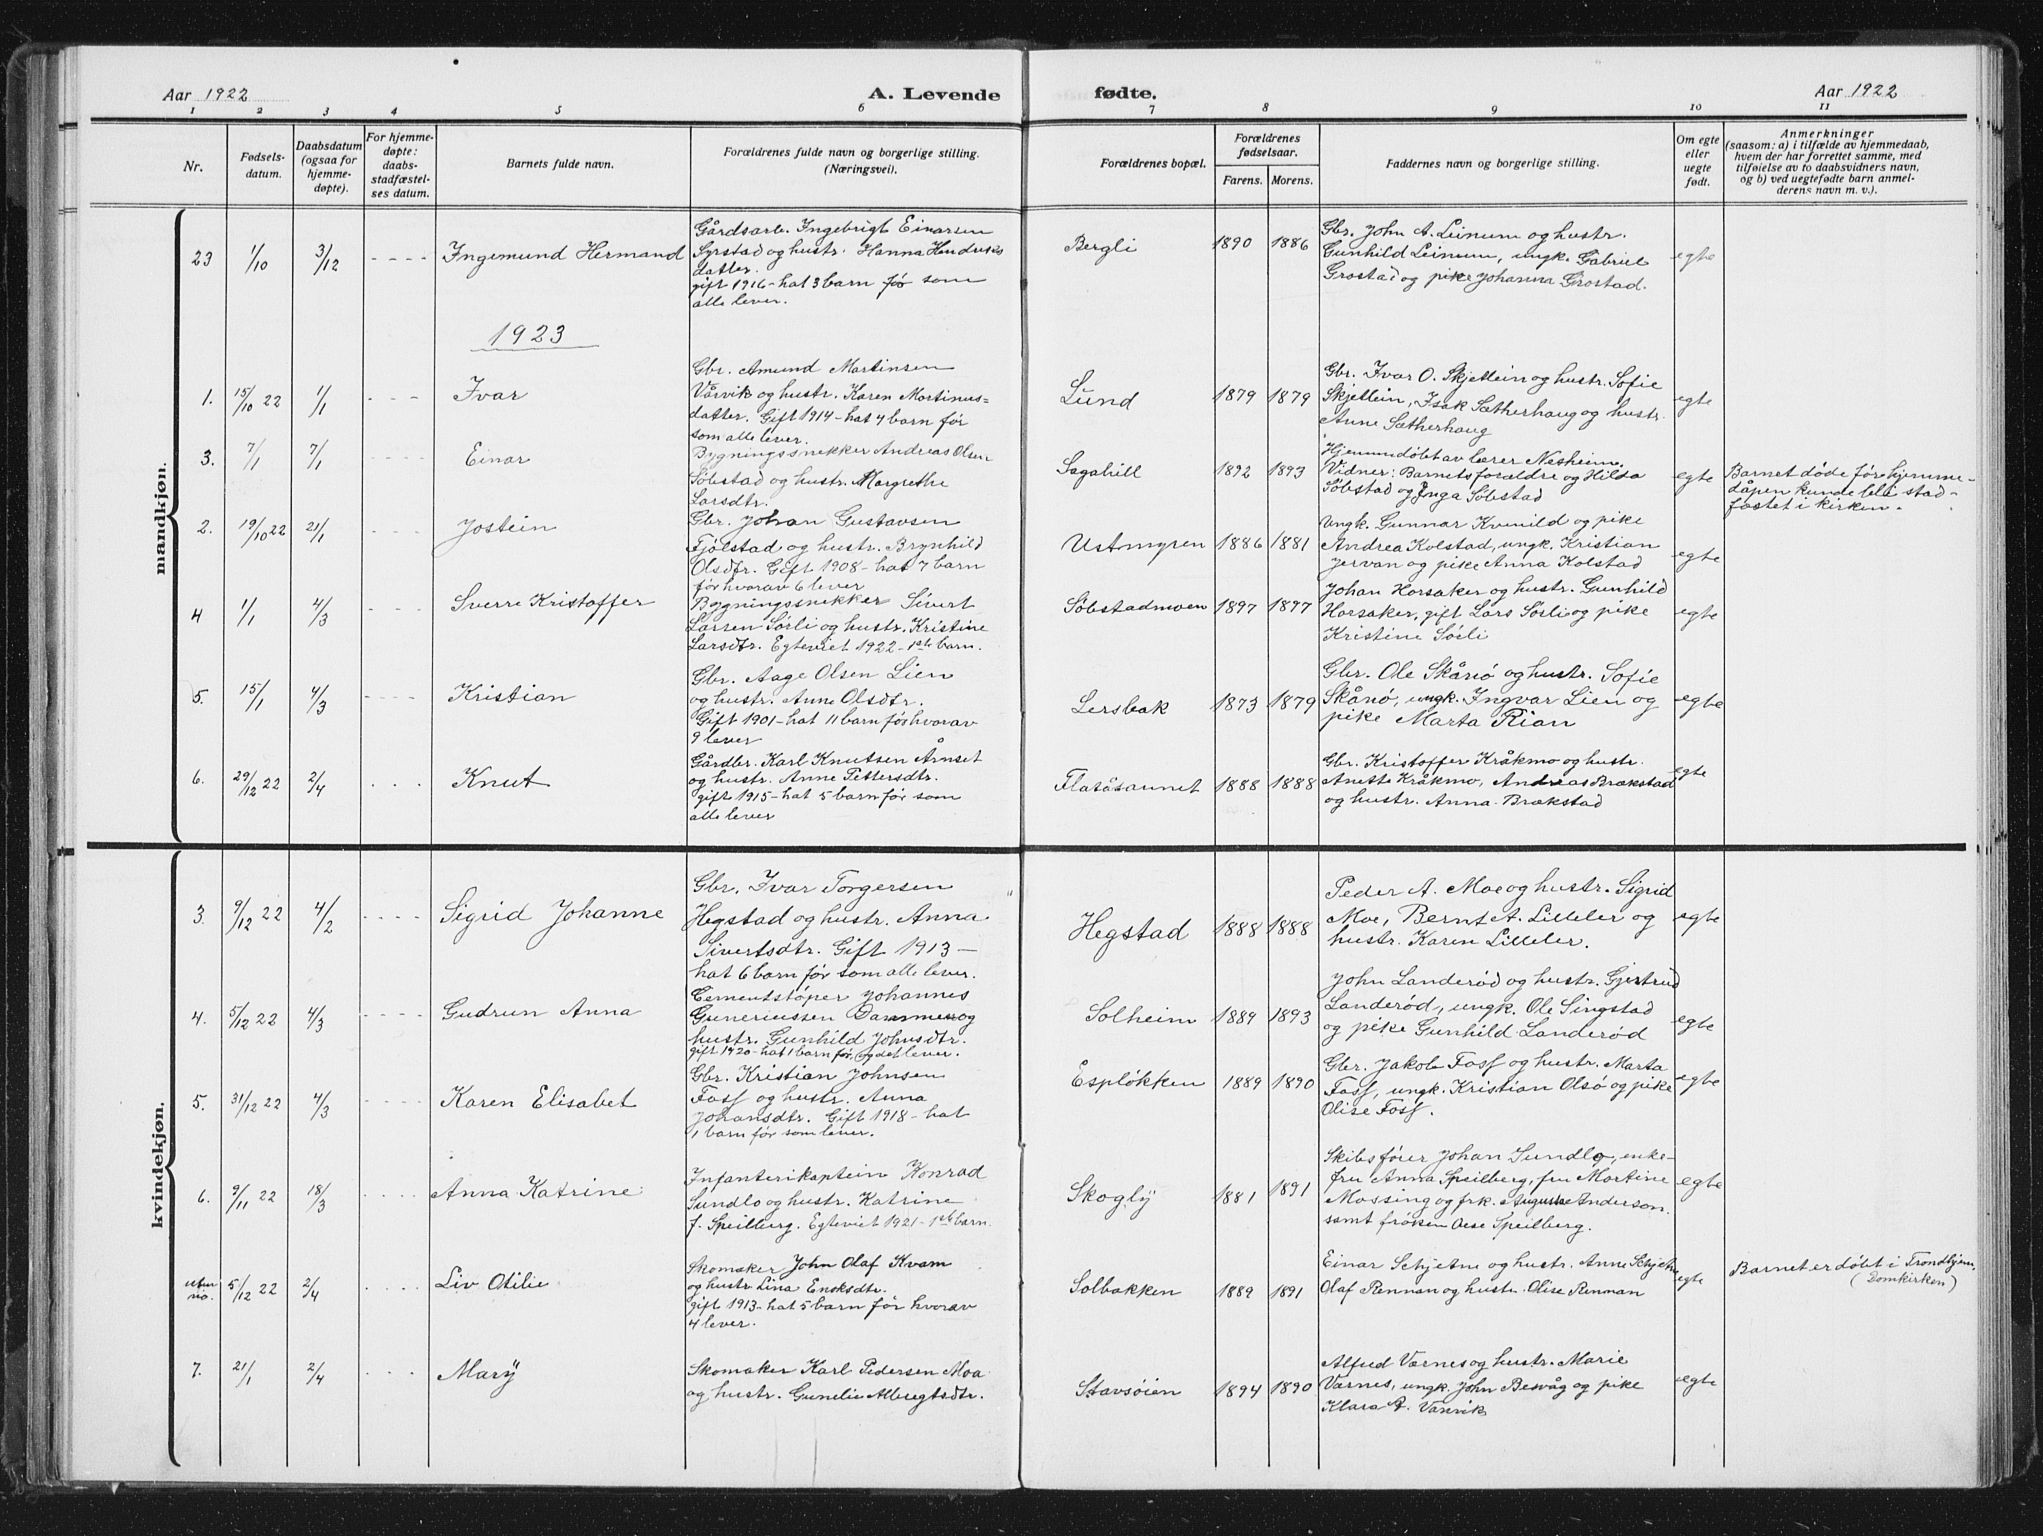 Aar 1922
A. Levende
fødte.
Aar 1922
1 2 3 4 5 6 7 8 9 10 11
Nr.
Fødsels-
datum.
Daabsdatum
(ogsaa for
hjemme-
døpte).
For hjemme-
døpte:
daabs-
stadfæstel-
ses datum.
Barnets fulde navn.
Forældrenes fulde navn og borgerlige stilling.
(Næringsvei).
Forældrenes bopæl.
Forældrenes
fødselsaar.
Farens. Morens.
Faddernes navn og borgerlige stilling.
Om egte
eller
uegte
født.
Anmerkninger
(saasom: a) i tilfælde av hjemmedaab,
hvem der har forrettet samme, med
tilføielse av to daabsvidners navn,
og b) ved uegtefødte barn anmel-
derens navn m. v.).
mandkjøn.
23 1/10 3/12 Ingemund Hermand
Gårdsarb. Ingebrigt Einarsen
Syrstad og hustr. Hanna Hendriks
datter.
gift 1916 - hat 3 barn før som
alle lever.
Bergli 1890 1886
Gbr. John A. Leinum og hustr.
Gunhild Leinum, ungk. Gabriel
Grostad og pike Johanna Grostad.
egte
1923
1. 15/10 22 1/1 Ivar
Gbr. Amund Martinsen
Vårvik og hustr. Karen Martinus-
datter. Gift 1914 - hat 4 barn før
som alle lever.
Lund 1879 1879
Gbr. Ivar O. Skjetlein og hustr. Sofie
Skjetlein, Isak Sætherhaug og hustr.
Anne Sætherhaug
egte
3. 7/1 7/1 Einar
Bygningssnekker Andreas Olsen
Söbstad og hustr. Margrethe
Larsdtr.
Sagahill 1892 1893
Hjemmedøbt av lærer Nesheim.
Vidner: Barnets foraldre og Hilda
Söbstad og Inga Söbstad
egte
Barnet døde før hjemme-
dåpen kunde bli stad-
fastet i kirken.
2. 19/10 22 21/1 Jostein
Gbr. Johan Gustavsen
Fjölstad og hustr. Brynhild
Olsdtr. Gift 1908 - hat 7 barn
før hvorav 6 lever
Ustmyren 1886 1881
Ungk. Gunnar Kvenild og pike
Andrea Kolstad, ungk. Kristian
Jervan og pike Anna Kolstad
egte
4 1/1 4/3 Sverre Kristoffer
Bygningssnekker Sivert
Larsen Sörli og hustr. Kristine
Larsdtr. Egteviet 1922 - 1ste barn.
Söbstadmoen 1897 1897
Johan Horsaker og hustr. Gunhild
Horsaker, gift Lars Sörli og pike
Kristine Sörli
egte
5. 15/1 4/3 Kristian
Gbr. Aage Olsen Lien
og hustr. Anne Olsdtr.
Gift 1901 - hat 11 barn før hvorav
9 lever
Lersbak 1873 1879
Gbr. Ole Skånö og hustr. Sofie
Skånö, ungk. Ingvar Lien og
pike Marta Rian
egte
6. 29/12 22 2/4 Knut
Gårdbr. Karl Knutsen Årnset
og hustr. Anne Pettersdtr.
gift 1915 - hat 5 barn før som
alle lever
Flatåsaunet 1888 1888
Gbr. Kristoffer Kråkmo og hustr.
Anette Kråkmo, Andreas Brækstad
og hustr. Anna Brækstad
egte
kvindekjøn.
3. 9/12 22 4/2 Sigrid Johanne
Gbr. Ivar Torgersen
Hegstad og hustr. Anna
Sivertsdtr. Gift 1913 -
hat 6 barn før som alle lever.
Hegstad 1888 1888
Peder A. Moe og hustr. Sigrid
Moe, Bernt A. Lilleler og
hustr. Karen Lilleler.
egte
4. 5/12 22 4/3 Gudrun Anna
Cementstöper Johannes
Guneriussen Dammen og
hustr. Gunhild Johnsdtr.
gift 1920 - hat 1 barn før, og det lever.
Solheim 1889 1893
John Landeröd og hustr. Gjertrud
Landeröd, ungk. Ole Singstad
og pike Gunhild Landeröd
egte
5. 31/12 22 4/3 Karen Elisabet
Gbr. Kristian Johnsen
Foss og hustr. Anna
Johansdtr. Gift 1918 - hat
1 barn før som lever.
Esplökken 1889 1890
Gbr. Jakob Foss og hustr. Marta
Foss, ungk. Kristian Olsö og pike
Olise Foss.
egte
6. 9/11 22 18/3 Anna Katrine
Infanterikaptein Konrad
Sundlo og hustr. Katrine
f. Speilberg. Egteviet 1921 - 1ste barn.
Skogly 1881 1891
Skibsfører Johan Sundlo, enke-
fru Anna Speilberg, fru Martine
Mossing og frk. Auguste Anderson
samt fröken Oese Speilberg.
egte
uten
no. 5/12 22 2/4 Liv Otilie
Skomaker John Olaf Kvam
og hustr. Lina Enoksdtr.
gift 1913 - hat 5 barn før hvorav
4 lever.
Solbakken 1889 1891
Einar Schjetne og hustr. Anne Schjetne
Olaf Renman og hustr. Olise Renman
egte
Barnet er döbt i Trondhjem,
(Domkirken)
7. 21/1 2/4 Mary
Skomaker Karl Pedersen Moa
og hustr. Gunelie Albregtsdtr.
Stavsöien 1894 1890
Alfred Varnes og hustr. Marie
Varnes, ungk. John Besvåg og pike
Klara A. Varvik
egte